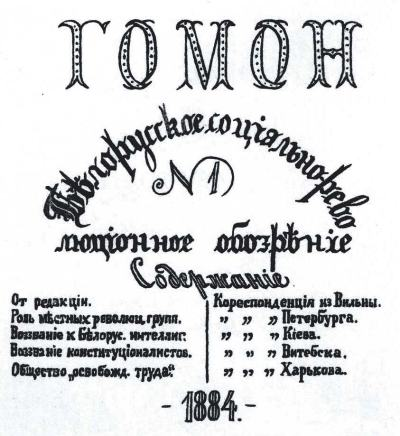 ГОМОН
Бѣлорусское соціально-рево
№ 1
люціонное обозрѣніе
Содержаніе
От редакціи.
Роль мѣстных революц. групп.
Воззваніе к Бѣлорус. интеллиг.
Воззваніе конституціоналистов.
Общество „освобожд. труда“.
Кореспонденція из Вильны.
„ „ „ Петербурга.
„ „ „ Кіева.
„ „ „ Витебска.
„ „ „ Харькова.
- 1884. -